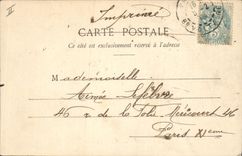 Imprimé
CARTE POSTALE
Ce côté est exclusivement réservé à l'adresse
Mademoiselle
Aimée Lefèbvre
46 rue de la Folie Méricourt 46
Paris XIeme